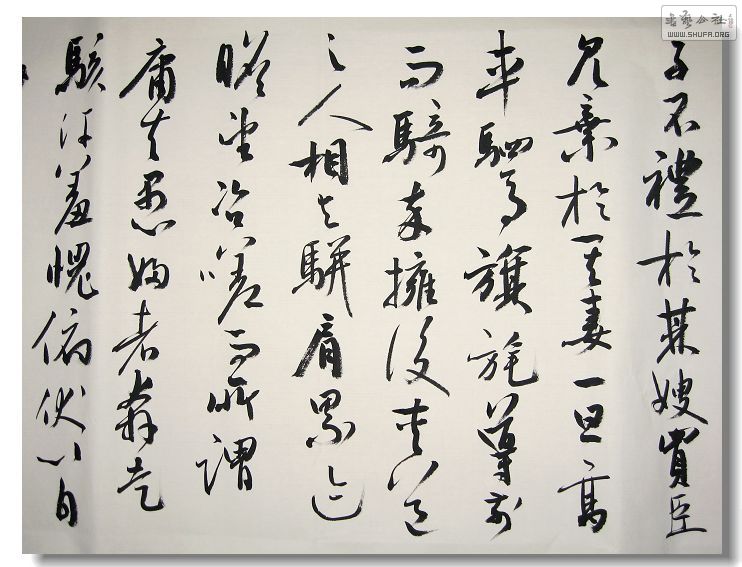 書藝公社
WWW.SHUFA.ORG
子不禮於其嫂買臣
見棄於其妻一旦高
車駟馬旗旄導前
而騎卒擁後夾道
之人相與駢肩累迹
瞻望咨嗟而所謂
庸夫愚婦者奔走
駭汗羞愧俯伏以自